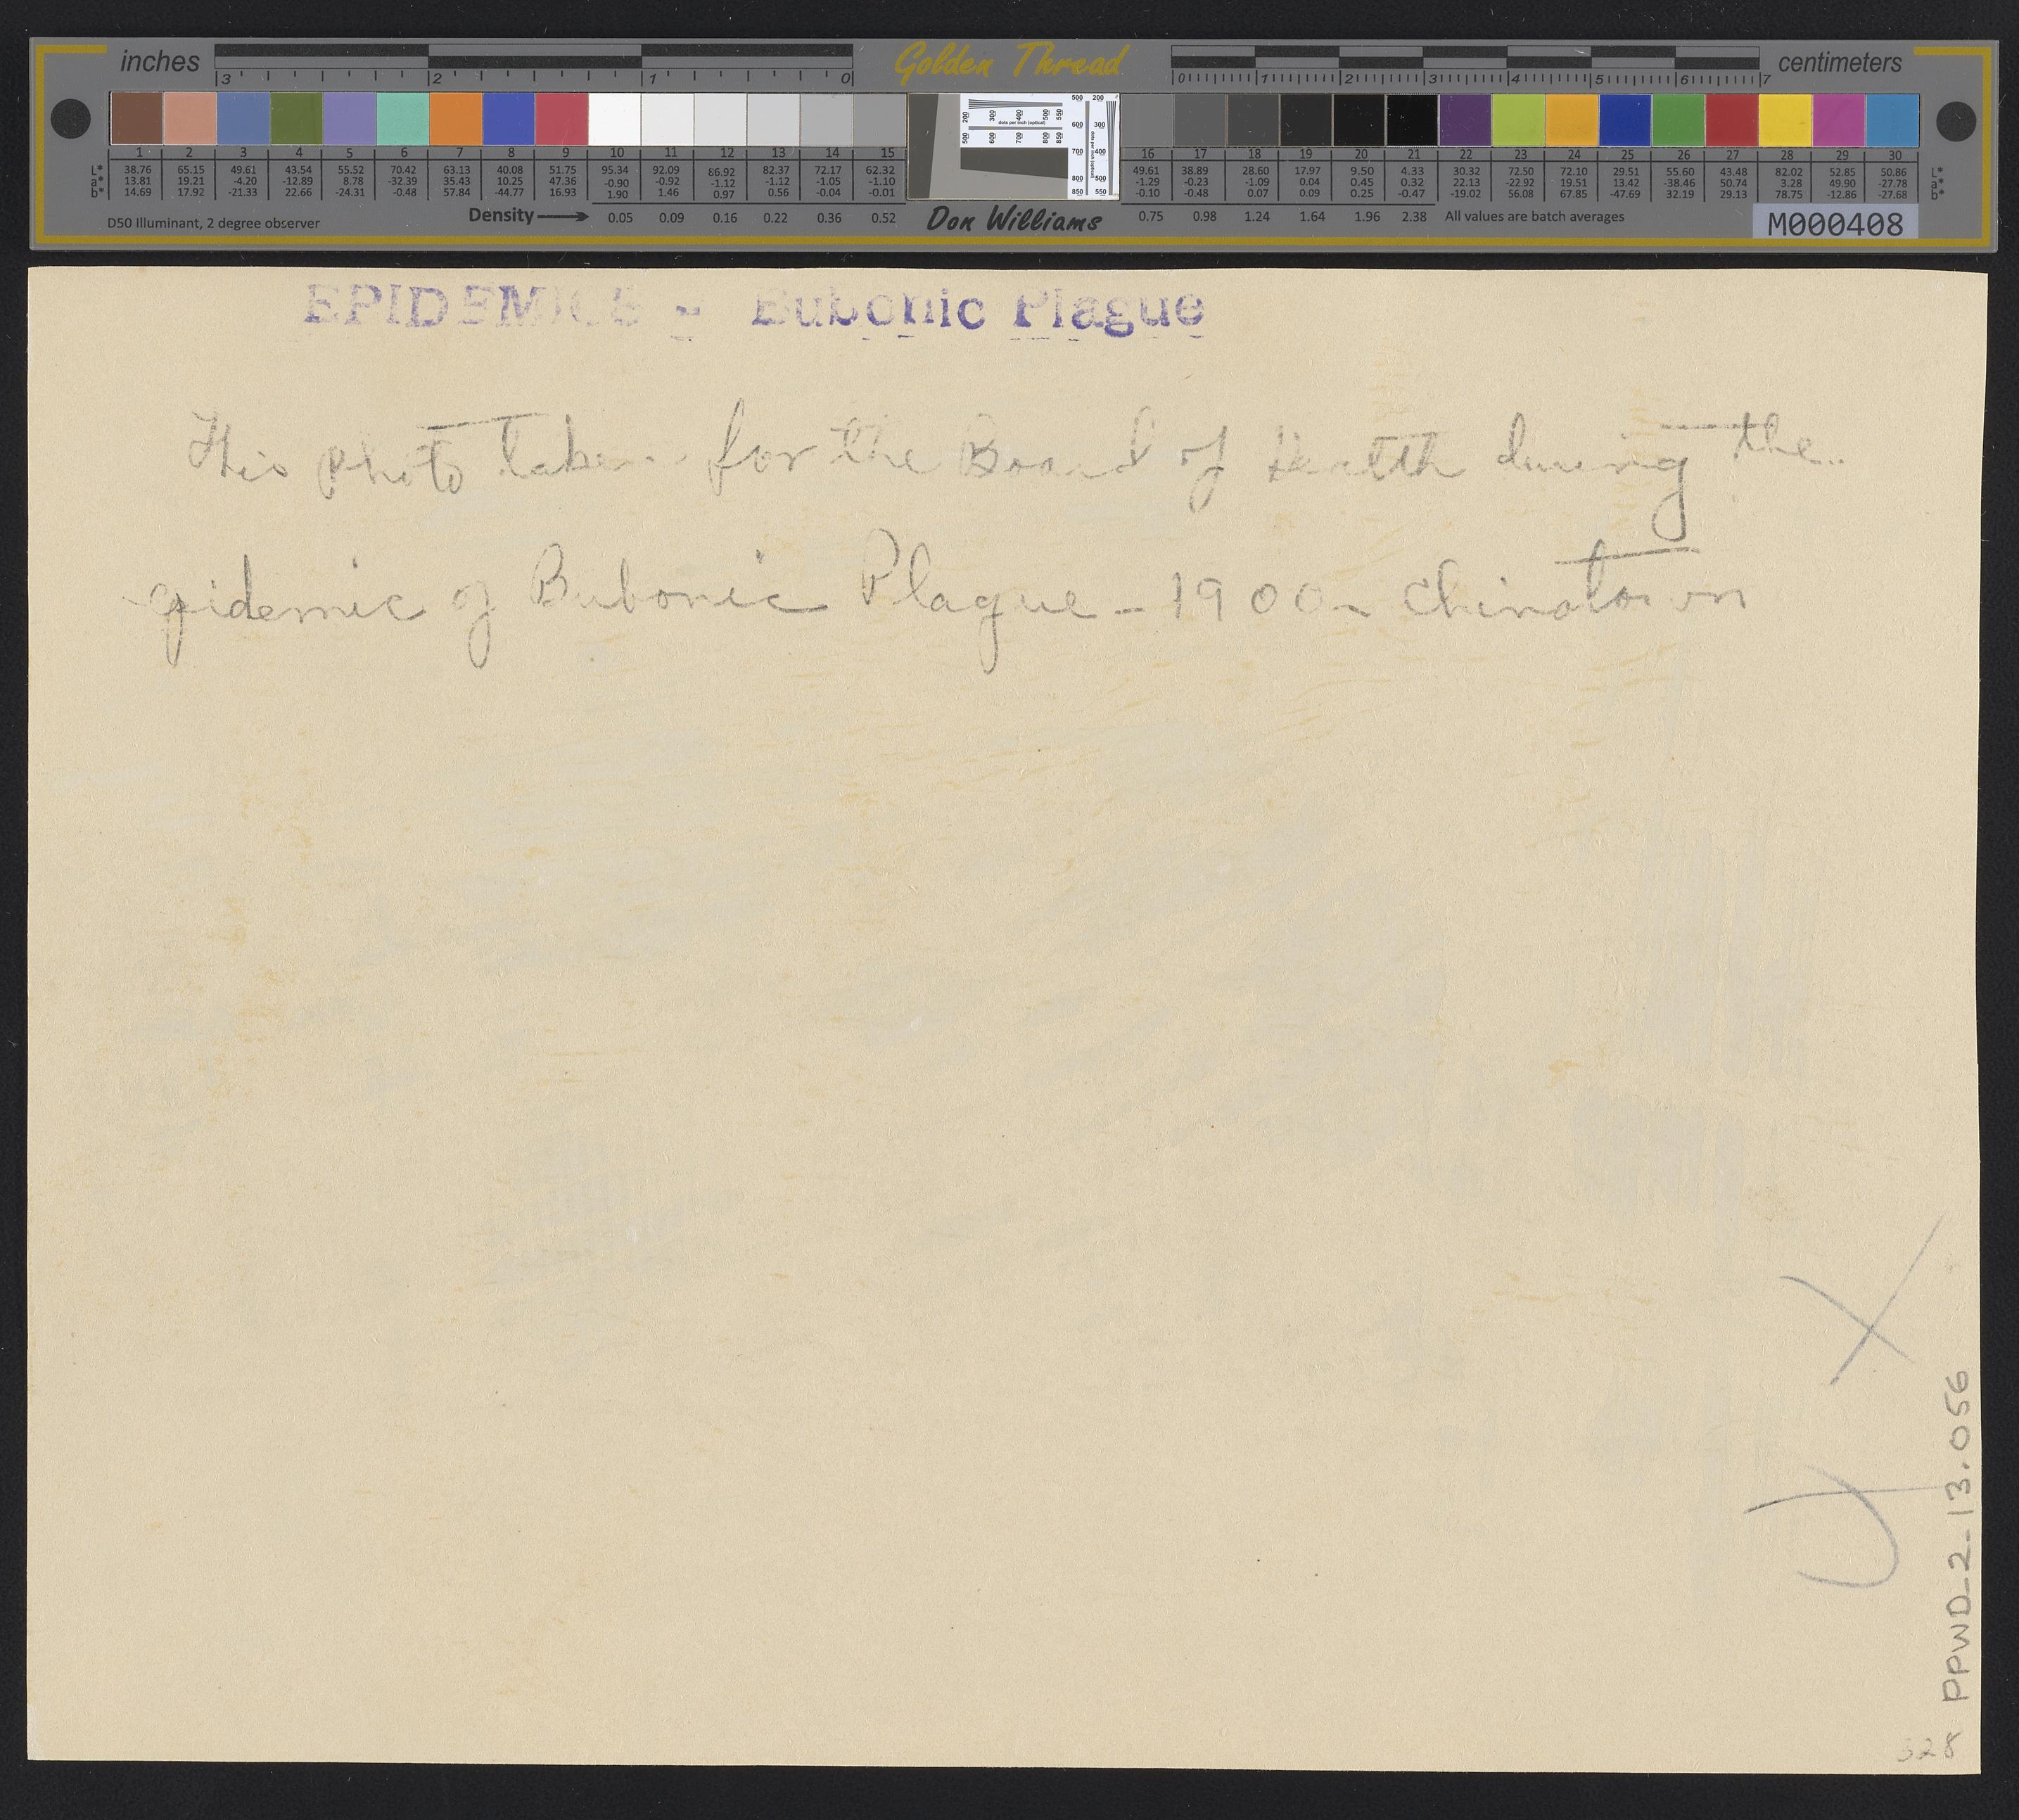 inches 3 2 1 0 Golden Thread 0 1 2 3 4 5 6 7 centimeters
1 2 3 4 5 6 7 8 9 10 11 12 13 14 15 16 17 18 19 20 21 22 23 24 25 26 27 28 29 30
L* 38.76 65.15 49.61 43.54 55.52 70.42 63.13 40.08 51.75 95.34 92.09 86.92 82.37 72.17 62.32 49.61 38.89 28.60 17.97 9.50 4.33 30.32 72.50 72.10 29.51 55.60 43.48 82.02 52.85 50.86 L*
a* 13.81 19.21 -4.20 -12.89 8.78 -32.39 35.43 10.25 47.36 -0.90 -0.92 -1.12 -1.12 -1.05 -1.10 -1.29 -0.23 -1.09 0.04 0.45 0.32 22.13 -22.92 19.51 13.42 -38.46 50.74 3.28 49.90 -27.78 a*
b* 14.69 17.92 -21.33 22.66 -24.31 -0.48 57.84 -44.77 16.93 1.90 1.46 0.97 0.56 -0.04 -0.01 -0.10 -0.48 0.07 0.09 0.25 -0.47 -19.02 56.08 67.85 -47.69 32.19 29.13 78.75 -12.86 -27.68 b*
D50 Illuminant, 2 degree observer Density 0.05 0.09 0.16 0.22 0.36 0.52 Don Williams 0.75 0.98 1.24 1.64 1.96 2.38 All values are batch averages M000408
EPIDEMICS - Bubonic Plague
This photo taken for the Board of Health during the
epidemic of Bubonic Plague - 1900 - Chinatown
X
PPWD_2-13.056
328